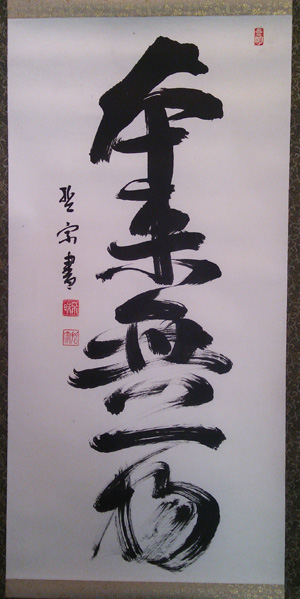 本来無一物
宗書